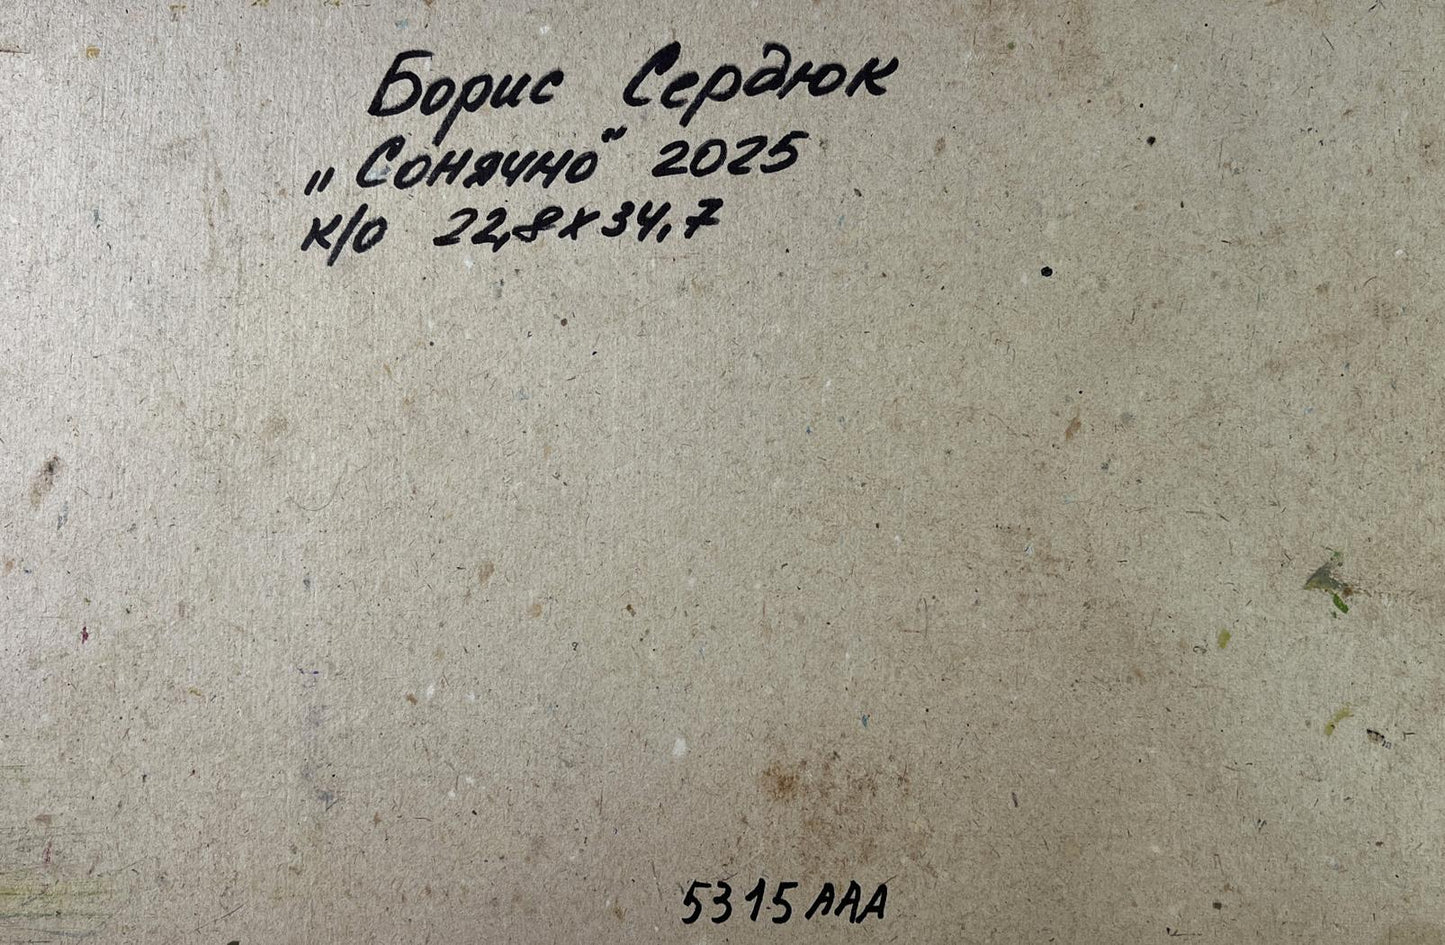 Борис Сердюк
„Сонячно" 2025
к/о 22,8х34,7
5315ААА